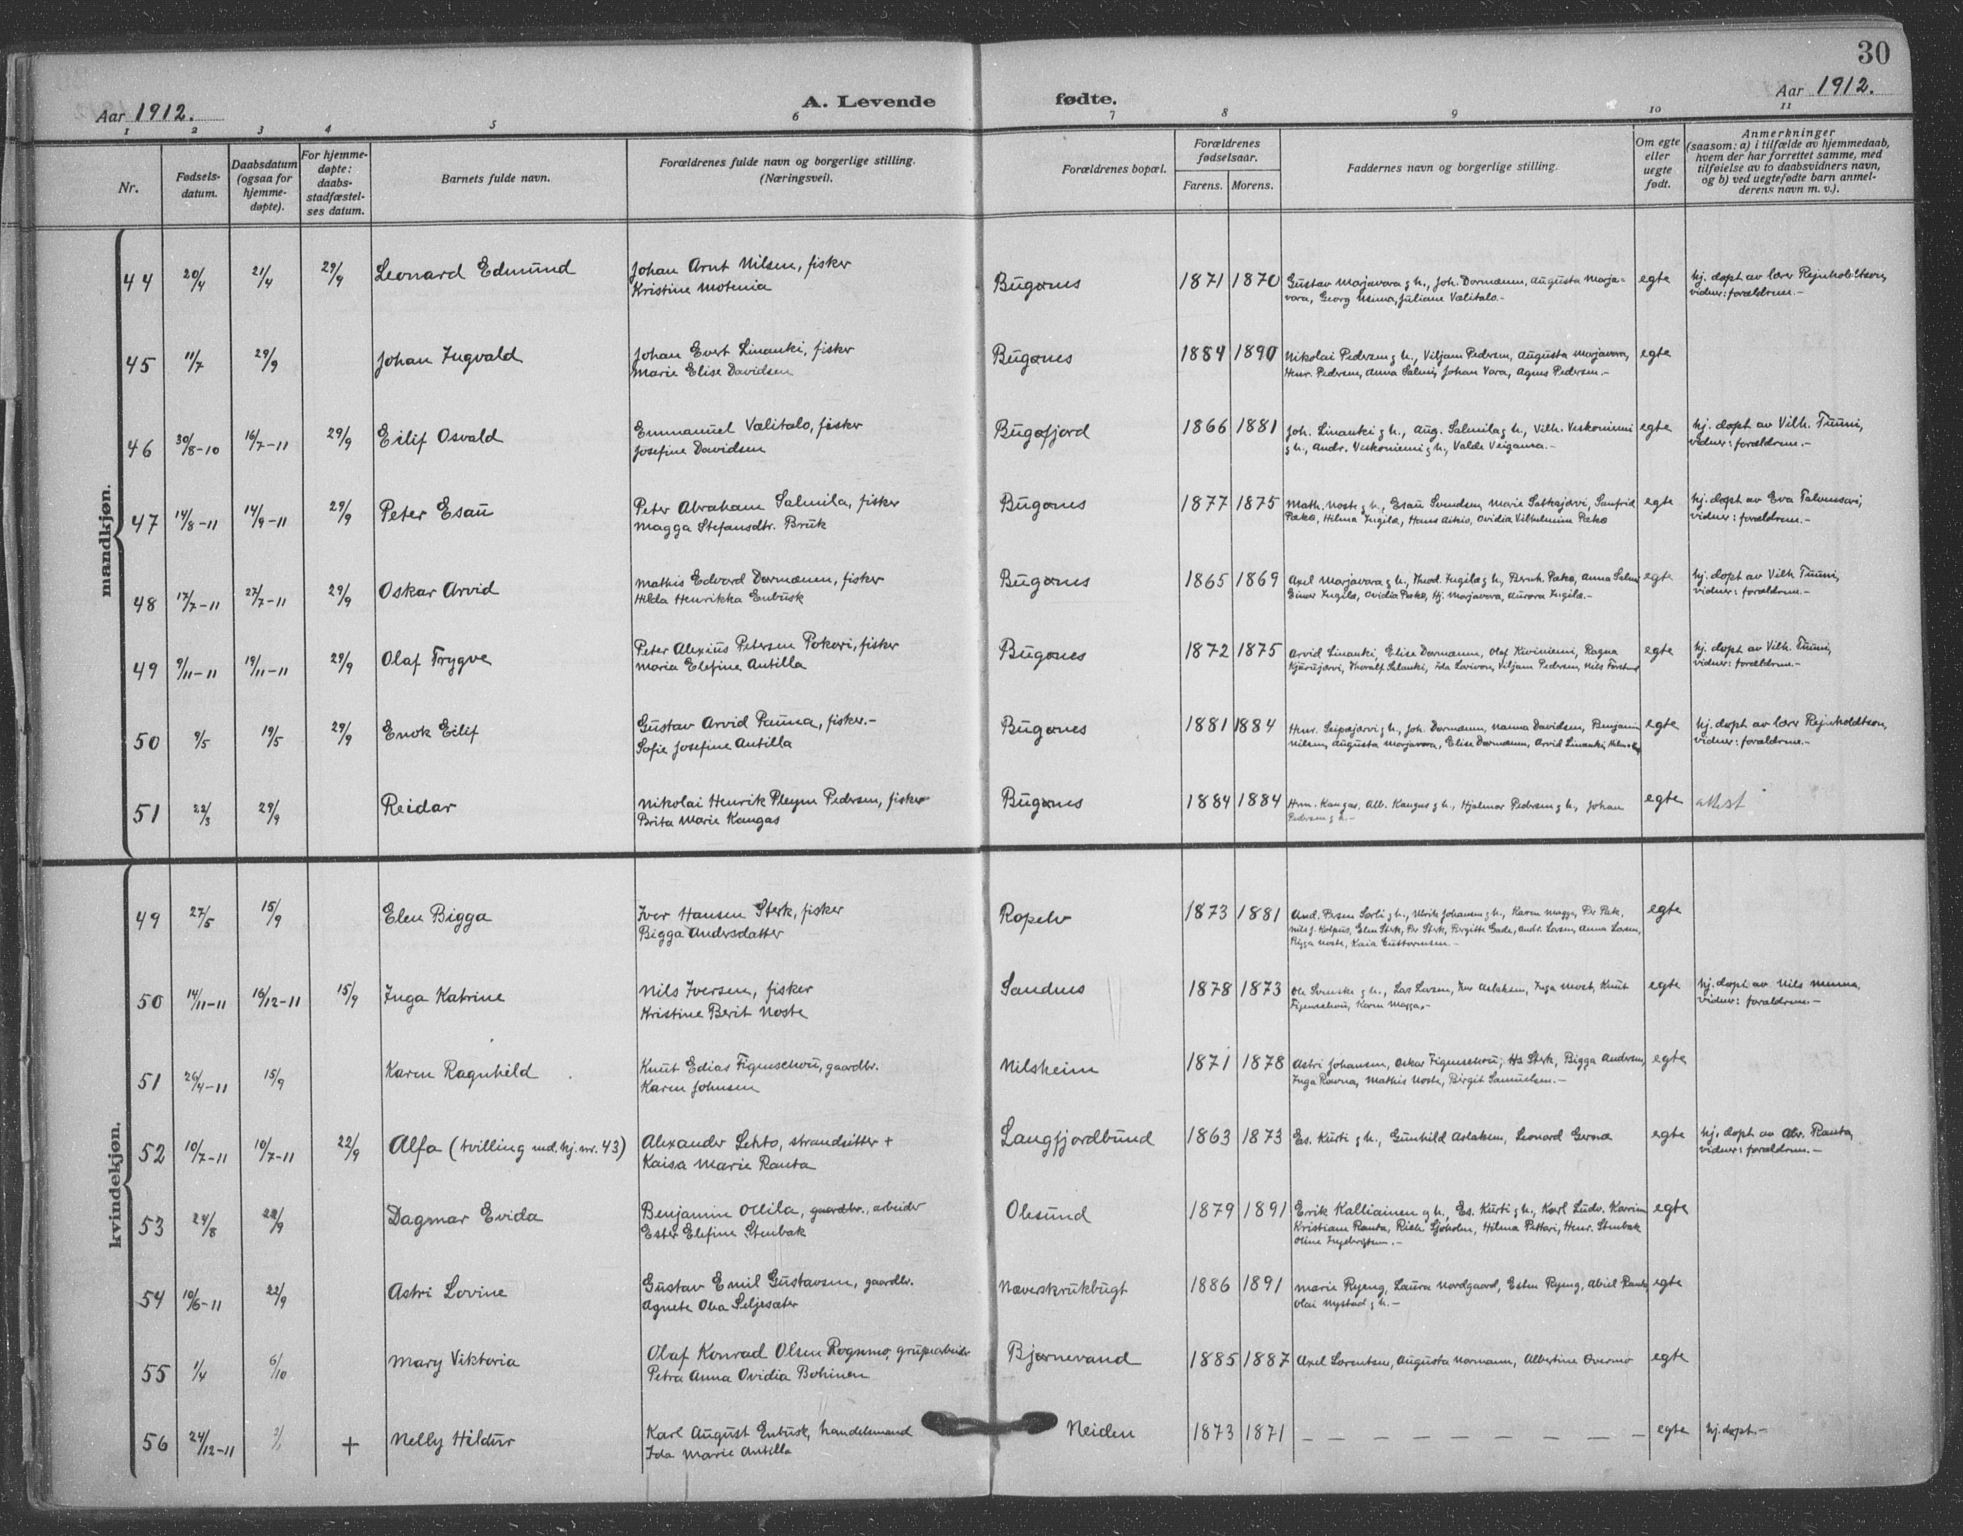 30
Aar 1912. A. Levende fødte. Aar 1912.
1 2 3 4 5 6 7 8 9 10 11
Nr.
Fødsels-
datum.
Daabsdatum
(ogsaa for
hjemme-
døpte).
For hjemme-
døpte:
daabs-
stadfæstel-
ses datum.
Barnets fulde navn.
Forældrenes fulde navn og borgerlige stilling.
(Næringsvei).
Forældrenes bopæl.
Forældrenes
fødselsaar.
Farens. Morens.
Faddernes navn og borgerlige stilling.
Om egte
eller
uegte
født.
Anmerkninger
(saasom: a) i tilfælde av hjemmedaab,
hvem der har forrettet samme, med
tilføielse av to daabsvidners navn,
og b) ved uegtefødte barn anmel-
derens navn m. v.).
mandkjøn.
44 20/4 21/4 29/9 Leonard Edmund Johan Arnt Nilsen, fisker Bugønes 1871 1870 Gustav Marjavara g h., Joh. Dørmænen, Augusta Marja- egte hj. døpt av lærer Rejnholdtsen,
Kristine Motenia vara, Georg, Juliane Vælitalo.- vidner: forældrene.-
45 11/7 29/9 Johan Ingvald Johan Evert Linanki, fisker Bugønes 1884 1890 Nikolai Pedersen g h., Viljam Pedersen, Augusta Marjavara, egte
Marie Elise Davidsen Henr. Pedersen, Anna Salmi, Johan Vara, Agnes Pedersen.-
46 30/8-10 16/7-11 29/9 Eilif Osvald Emmanuel Vælitalo, fisker Bugøfjord 1866 1881 Joh. Linanki g h., Aug. Salmila g h., Vilh. Veskoniemi egte hj. døpt av Vilh. Tuuni,
Josefine Davidsen g h., Andr. Veskoniemi g h., Valde.- vidner: forældrene.-
47 14/8-11 14/9-11 29/9 Peter Esau Peter Abraham Salmila, fisker Bugønes 1877 1875 Math. Noste g h., Esau Svendsen, Marie Satkajærvi, Sanfrid egte hj. døpt av Eva
Magga Stefansdtr. Bruk Pækø, Hilma Ingilæ, Hans Aikio, Ovidia Vilhelmine Pækø vidner: forældrene.-
48 17/7-11 27/7-11 29/9 Oskar Arvid Mathis Edvard Dørmænen, fisker Bugønes 1865 1869 Axel Marjavara g h., Theod. Ingilæ g h., Bernh. Pækø, Anna Salmi egte hj. døpt av Vilh. Tuuni,
Hilda Henrikka Enbusk Einar Ingilæ, Ovidia Pækø, Hj. Marjavara, Aurora Ingilæ.- vidner: forældrene.-
49 9/11-11 19/11-11 29/9 Olaf Trygve Peter Alexius Petersen Pokari, fisker Bugønes 1872 1875 Arvid Linanki, Elise Dørmænen, Olaf Kiviniemi, Ragna egte hj. døpt av Vilh. Tuuni,
Maria Elefine Antilla Thoralf Salanki, Ida, Viljam Pedersen, Nils vidner: forældrene.-
50 9/5 19/5 29/9 Enok Eilif Gustav Arvid Pauna, fisker.- Bugønes 1881 1884 Henr. Seipæjærvi g h., Joh. Dørmænen, Nanna Davidsen, Benjamin egte hj. døpt av lærer Rejnholdtsen,
Sofie Josefine Antilla Nilsen, Augusta Marjavara, Elise Dørmænen, Arvid Linanki, vidner: forældrene.-
51 22/3 29/9 Reidar Nikolai Henrik Pleym Pedersen, fisker Bugønes 1884 1884 Hrm. Kangas, Alb. Kangas g h., Hjalmar Pedersen g h., Johan egte attest
Brita Marie Kangas Pedersen g h.-
kvindekjøn.
49 27/5 15/9 Elen Bigga Iver Hansen Sterk, fisker Ropelv 1873 1881 And. Persen Sarli g h., Ulrik Johansen g h., Karen Magga, Per Pæk, egte
Bigga Andersdatter Nils J. Kolpus, Elen Sterk, Per Sterk, Birgitte Gade, Andr. Larsen, Anna Larsen,
Bigga Noste, Kaia Guttormsen.-
50 14/11-11 16/12-11 15/9 Inga Katrine Nils Iversen, fisker Sandnes 1878 1873 Ole Svenske g h., Lars Larsen, Iver Aslaksen, Inga Most, Knut egte hj. døpt av Nils
Kristine Berit Noste Figenschou, Karen Magga.- vidner: forældrene.-
51 26/4-11 15/9 Karen Ragnhild Knut Edias Figenschou, gaardbr. Nilsheim 1871 1878 Astri Johansen, Oskar Figenschou, Hs Sterk, Bigga Andersen, egte
Karen Johnsen Inga Ravna, Mathis Noste, Birgit Samuelsen.-
52 10/7-11 10/7-11 22/9 Alfa (tvilling med hj. nr. 43) Alexander Lehto, strandsitter + Langfjordbund 1863 1873 Es. Kurti g h., Gunhild Aslaksen, Leonard egte hj. døpt av Abr. Ranta,
Kaisa Marie Ranta vidner: forældrene.-
53 24/8 22/9 Dagmar Evida Benjamin Ollila, gaardbr., arbeider Olesund 1879 1891 Erik Kalliainen g h., Es. Kurti g h., Karl Ludv. Karrien egte
Ester Elefine Stenbak Kristiane Ranta, Rich. Sjøholm, Hilma Pettari, Henr. Stenbak
Oline Ingebrigtsen.-
54 10/6-11 22/9 Astri Lovine Gustav Emil Gustavsen, gaardbr. Næverskrukbugt 1886 1891 Marie Ryeng, Laura Nordgaard, Esten Ryeng, Abiel Ranta egte
Agnete Oba Seljesæter Olai Nystad g h.-
55 1/4 6/10 Mary Viktoria Olaf Konrad Olsen Rognmo, grubearbeider Bjørnevand 1885 1887 Axel Lorentsen, Augusta Normann, Albertine Overmo egte
Petra Anna Ovidia Bohinen
56 24/12-11 2/1 + Nelly Hildur Karl August Enbusk, handelsmand Neiden 1873 1871 — — — — — — — — — egte hj. døpt.-
Ida Marie Antilla